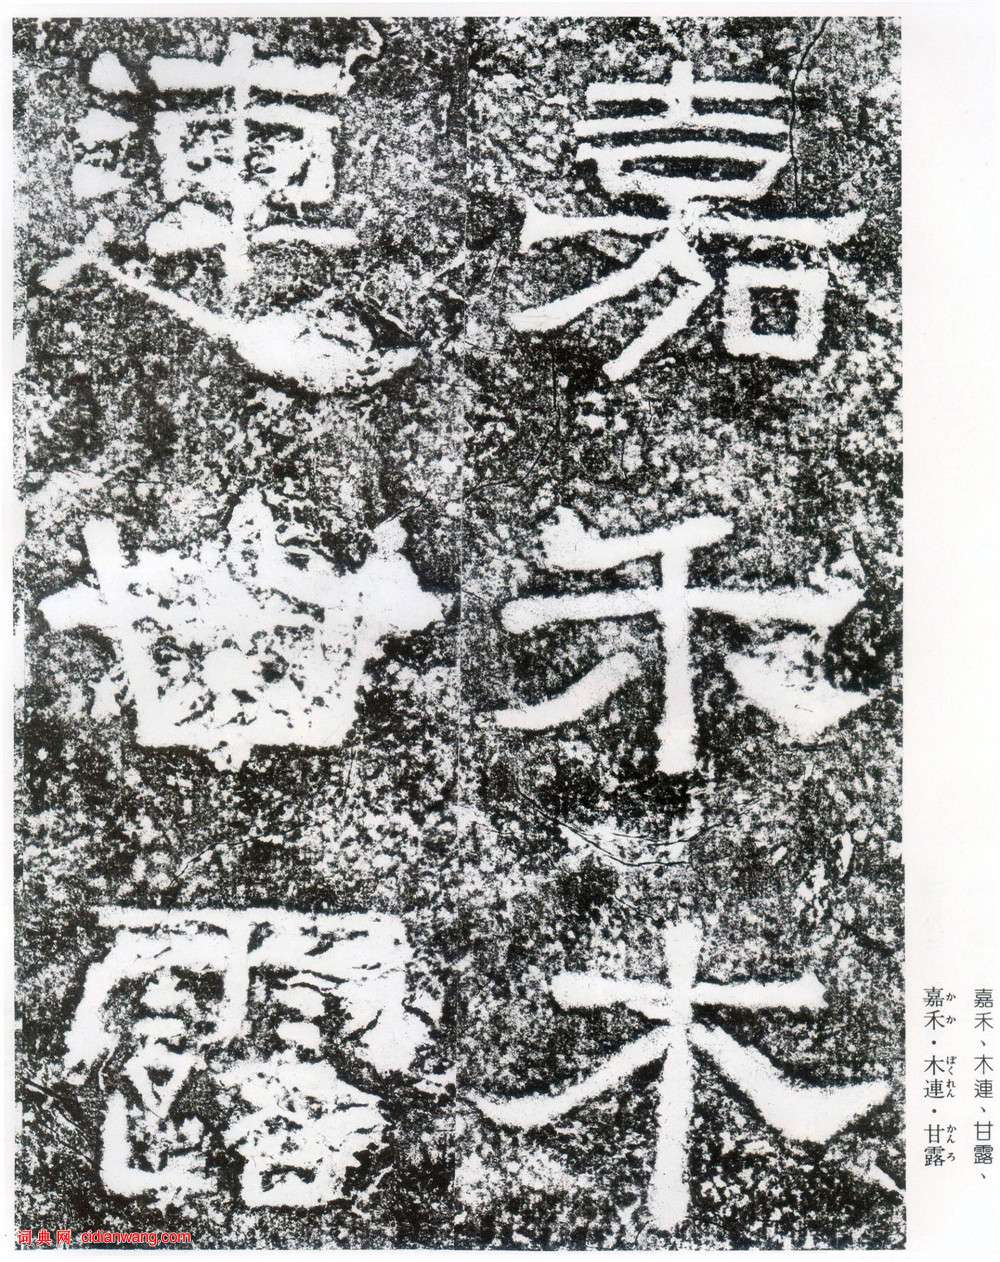 嘉禾木
連甘露
嘉禾、木連、甘露、
嘉禾・木連・甘露
かか ぼくれん かんろ
词典网 cidianwang.com